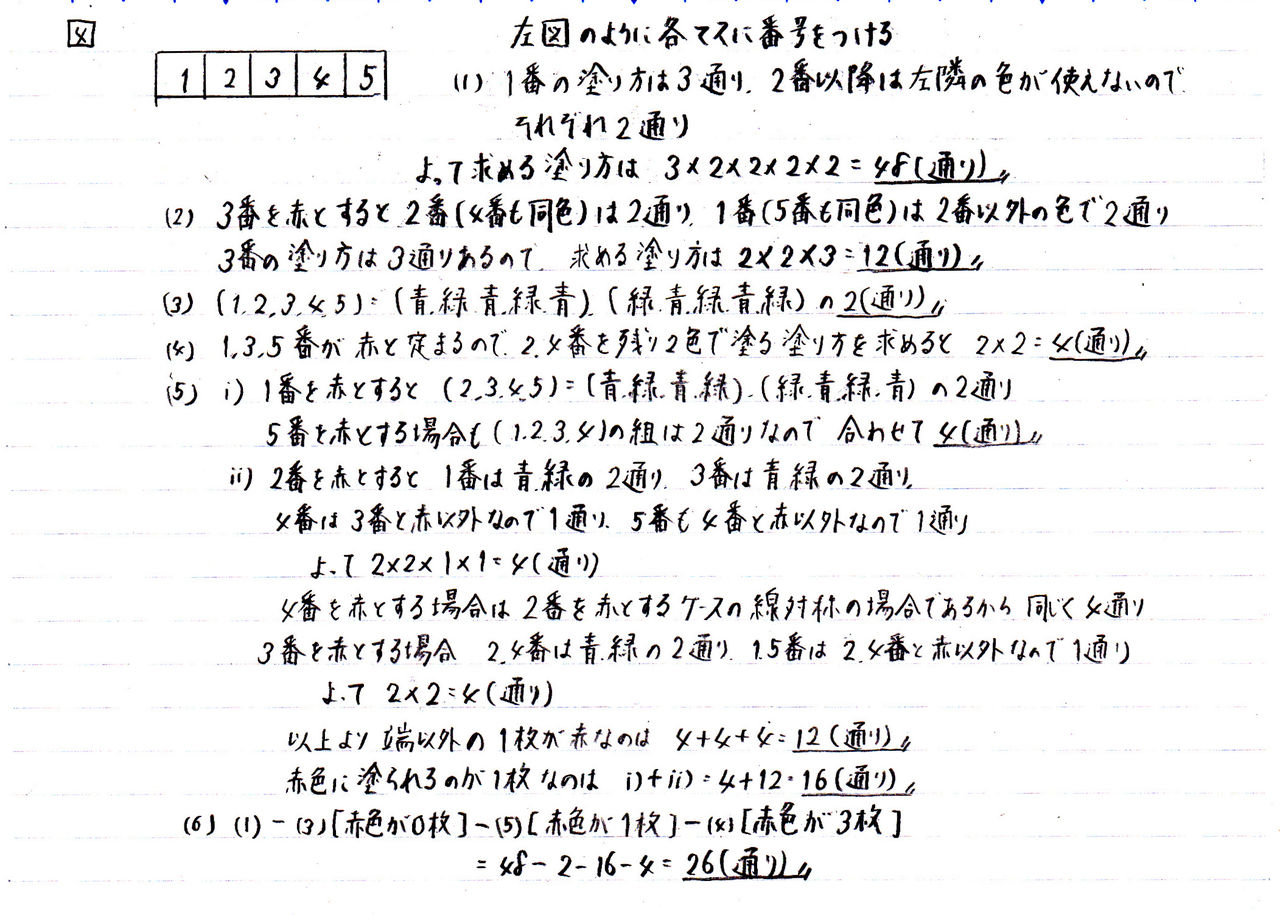 4
左図のように各マスに番号をつける
1 2 3 4 5
(1) 1番の塗り方は3通り、2番以降は左隣の色が使えないので
それぞれ2通り
よって求める塗り方は 3×2×2×2×2=48(通り)〃
(2) 3番を赤とすると2番(4番も同色)は2通り、1番(5番も同色)は2番以外の色で2通り
3番の塗り方は3通りあるので、求める塗り方は2×2×3=12(通り)〃
(3) (1,2,3,4,5)=(青,緑,青,緑,青),(緑,青,緑,青,緑)の2(通り)〃
(4) 1,3,5番が赤と定まるので、2,4番を残り2色で塗る塗り方を求めると 2×2=4(通り)〃
(5) i) 1番を赤とすると (2,3,4,5)=(青,緑,青,緑),(緑,青,緑,青)の2通り
5番を赤とする場合も(1,2,3,4)の組は2通りなので 合わせて4(通り)〃
ii) 2番を赤とすると 1番は青,緑の2通り、3番は青,緑の2通り、
4番は3番と赤以外なので1通り、5番も4番と赤以外なので1通り
よって 2×2×1×1=4(通り)
4番を赤とする場合は2番を赤とするケースの線対称の場合であるから 同じく4通り
3番を赤とする場合 2,4番は青,緑の2通り、1,5番は2,4番と赤以外なので1通り
よって 2×2=4(通り)
以上より 端以外の1枚が赤なのは 4+4+4=12(通り)〃
赤色に塗られるのが1枚なのは i)+ii)=4+12=16(通り)〃
(6) (1)-(3)[赤色が0枚]-(5)[赤色が1枚]-(4)[赤色が3枚]
=48-2-16-4=26(通り)〃